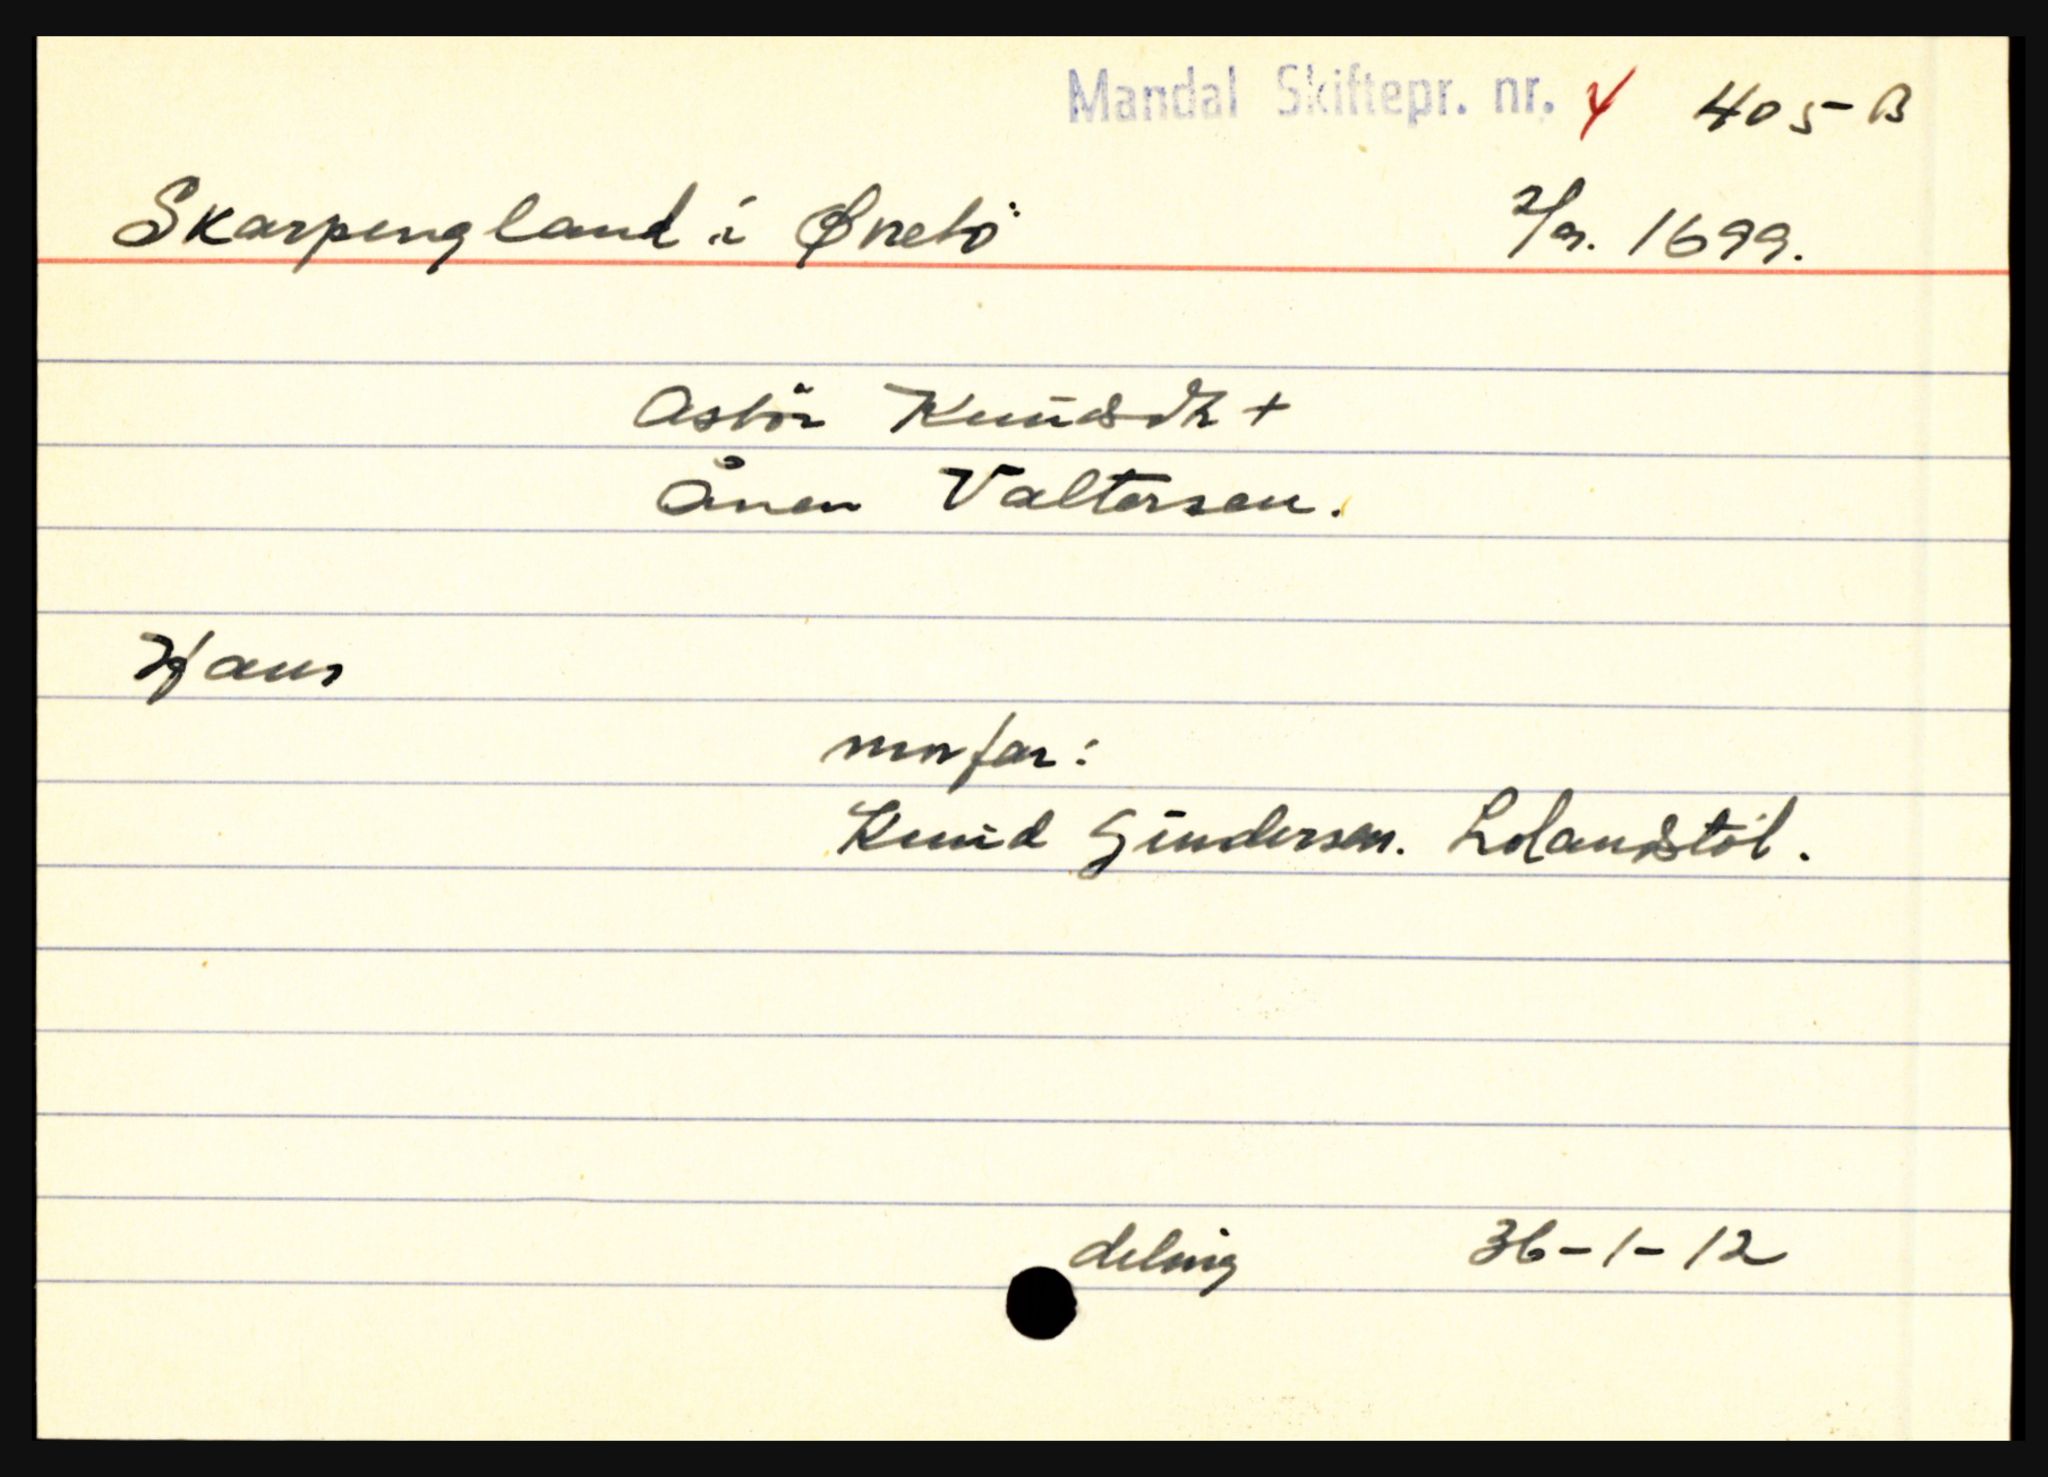 Mandal Skiftepr. nr. 4 405-B
Skarpengland i Øvebö 2/9. 1699.
Asbör Knudsdtr +
Ånen Valtersen.
Hans
morfar:
Knud Gundersen. Lolandstöl.
deling 36-1-12